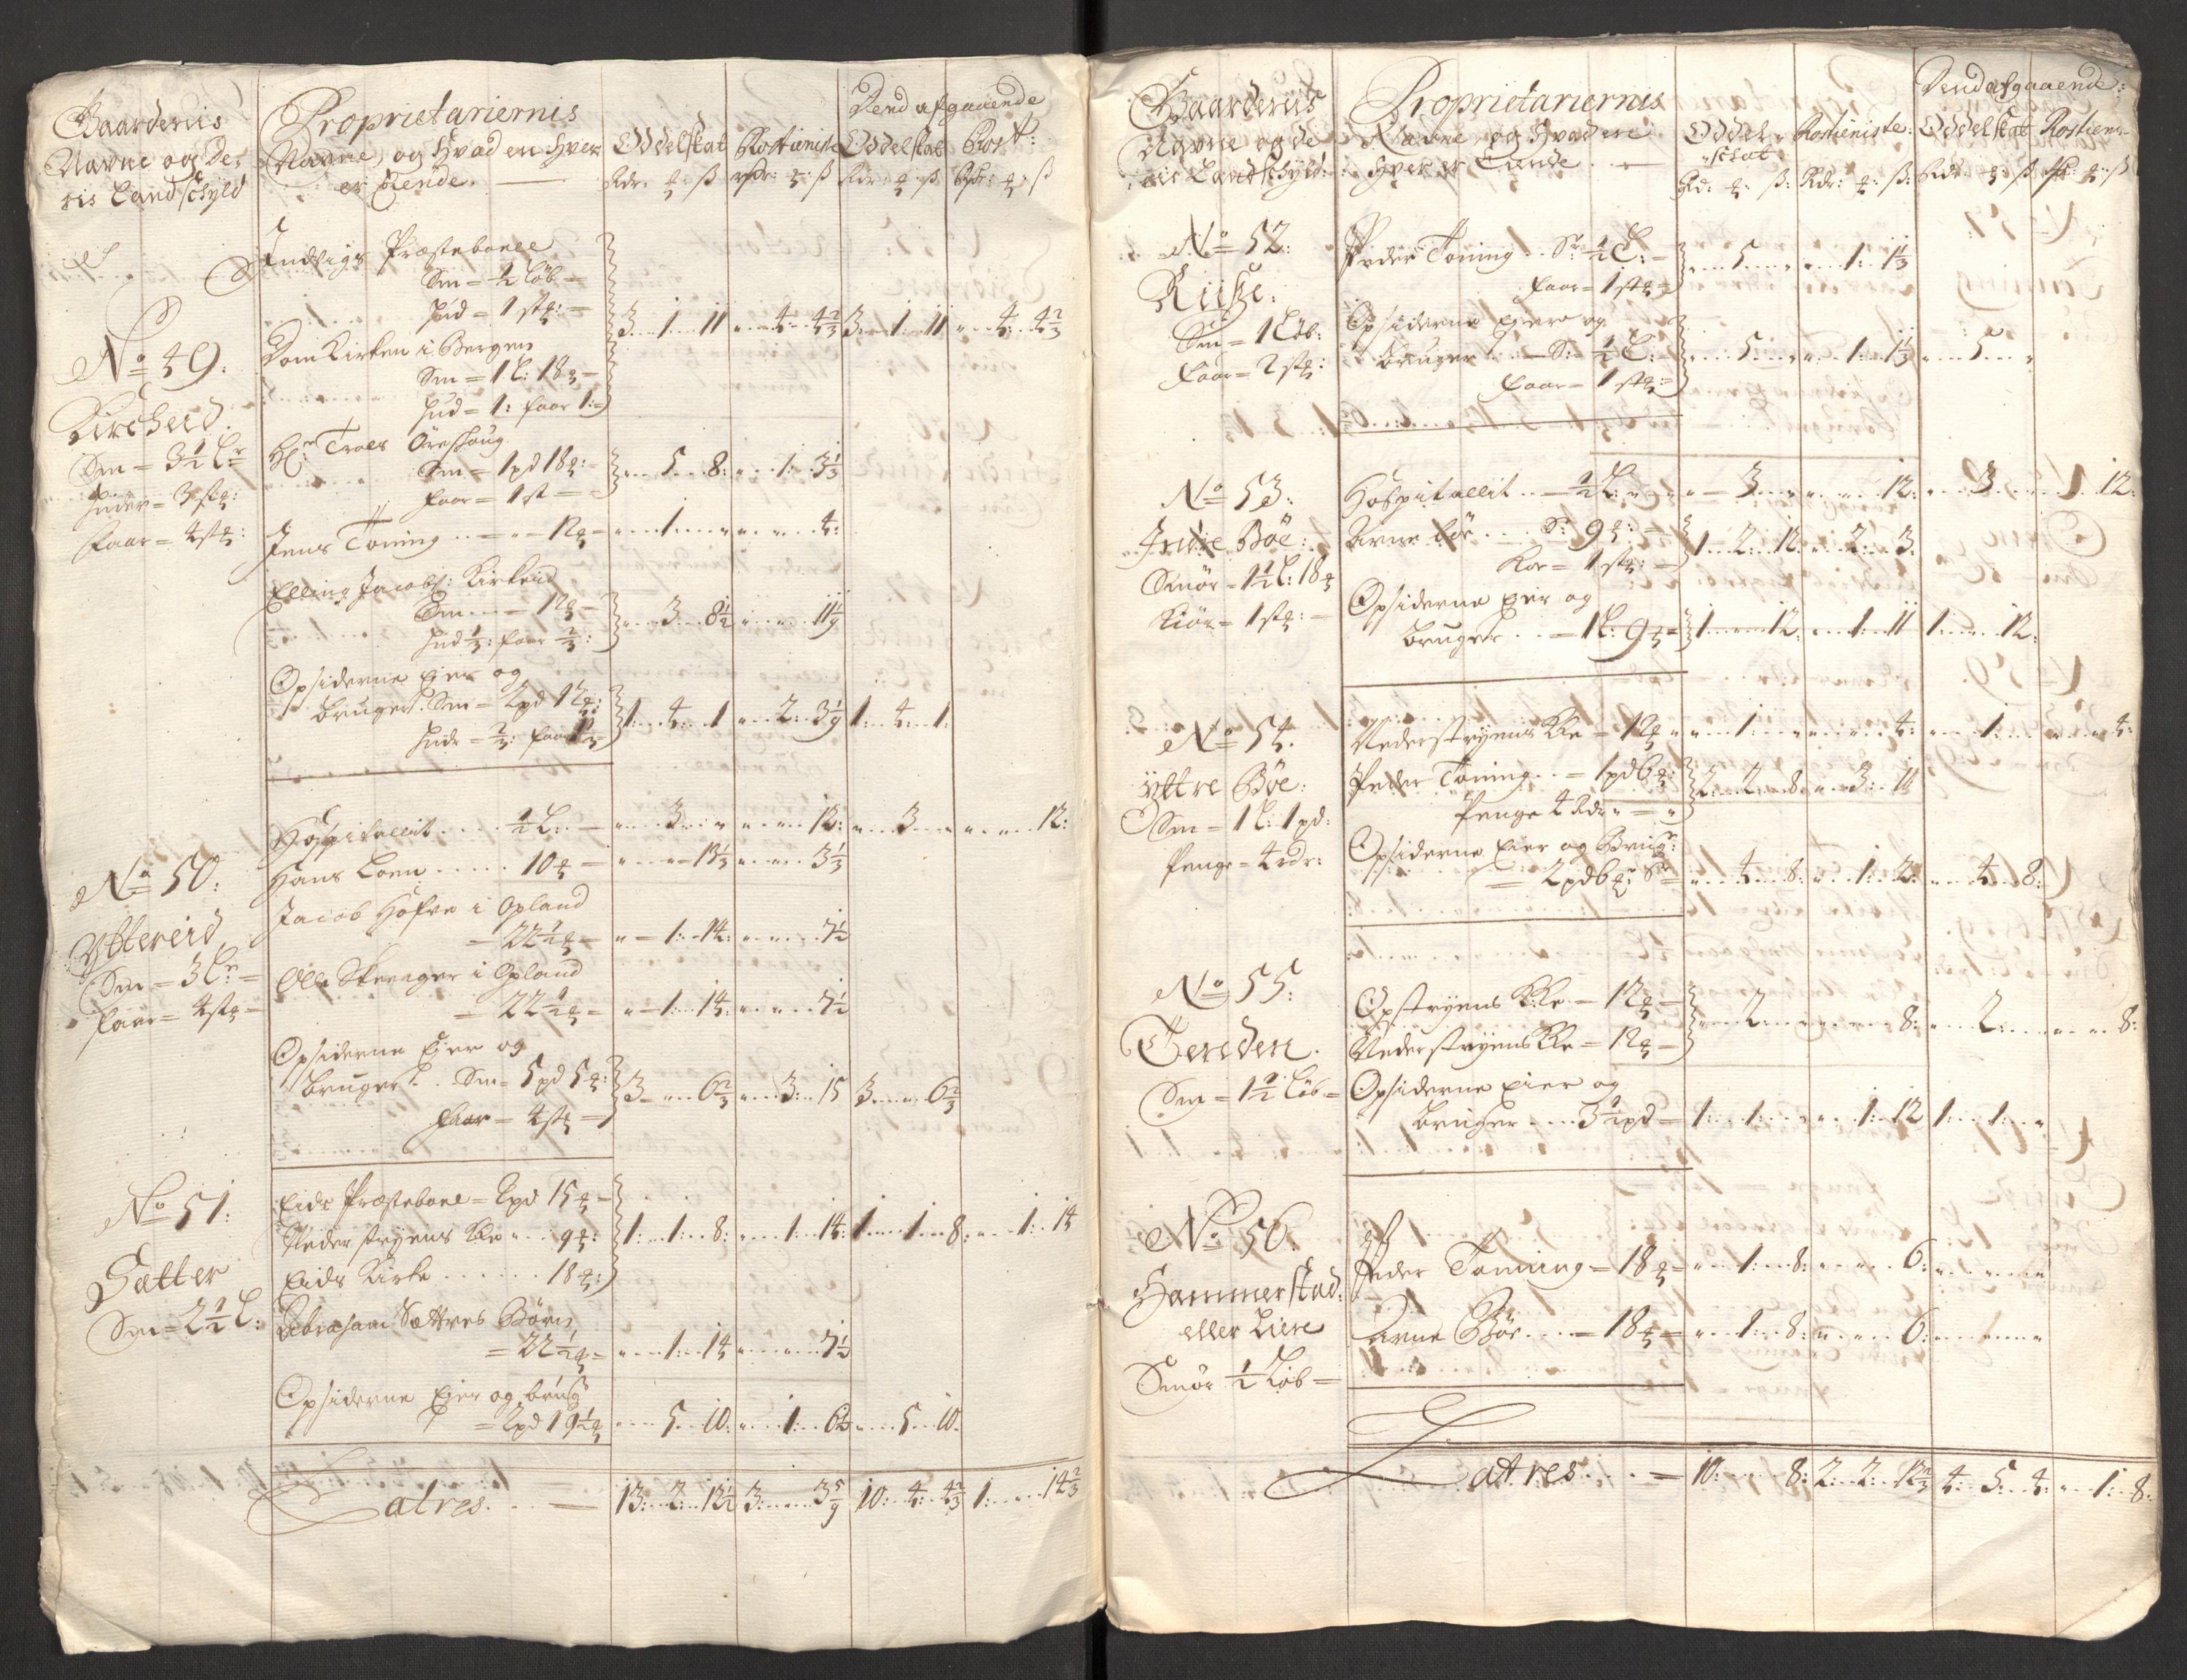 Gaardernis
Navne og De-
ris Landschyld
Proprietariernis
Navne, og Hvad en Hver
er Eiende.
Oddelskat
Rostieniste
Dend afgaaende
Oddelskat Rost:
Rdr: ℔: ß Rdr: ℔: ß Rdr: ℔: ß Rdr: ℔: ß
No 49.
Kircheid.
Sm = 3½ Lr
Huder = 3 st:
Faar = 4 st:
Indvigs Præstebohle
Sm = ½ Løb =
Hud = 1 st: =
Dom Kirken i Bergen
Sm = 1 L: 18 ℔ =
Hud = 1: faar 1: =
3 1 11 4 4⅔ 3 1 11 4 4⅔
Hr: Troes Öreshoug
Sm = 1 pd 18 ℔: =
Faar = 1 st =
5 8: 1: 3⅓
Jens Toning = 12 ℔ 1 4:
Elling Jacobs: Kirkeid
Sm = 12 ℔ =
Hud ⅓: faar ⅔:
3 8½ 11 1/9
Opsiderne Eier og
bruger. Sm = 2 pd 12 ℔:
Hude = ⅔: faar 1⅓
1: 4: 1 2: 3 1/9 1: 4: 1:
No 50:
Yttereid
Sm = 3 Lr =
Faar = 4 st =
Hospitallit ½ L: = 3 12: 3 12:
Hans Loen 10 ℔ = 13⅓ 3⅓
Jacob Hofve i Opland
= 22½ ℔ = 1: 14: 7½
Olle Skrenger i Opland
= 22½ ℔ = 1: 14: 7½
Opsiderne Eier og
bruger. Sm = 5 pd 5 ℔:
Faar = 4 st =
3 6⅔ 3: 15 3 6⅔
No 51:
Sætter
Sm = 2½ L:
Eids Præstebole = 2 pd 15 ℔ =
Nederstryens Kke 9 ℔:
Eids Kirke 18 ℔:
1: 1: 8: 1: 14: 1 1 8: 1: 14
Abraham Sættres Børn
= 22½ ℔ = 1: 14 7½
Opsiderne Eier og brug:
= 2 pd 19½ ℔ 5 10: 1: 6½ 5 10:
Latres. = 13: 2: 12½ 3: 3 5/9 10: 4: 4⅔ 1: 14⅔
Gaardernis
Navne og de-
ris Landschyld:
Proprietariernis
Navne, og Hvad en
Hver er Eiende
Oddel-
schat
Rostieniste:
Dend afgaaende:
Oddelskat Rostiene
Rd: ℔: ß: Rdr: ℔: ß: Rdr: ℔: ß Rd: ℔: ß
No 52:
Riise:
Sm = 1 Løb:
Faar = 2 st:
Peder Toning Sr: ½ L: =
Faar = 1 st =
5 1: 1⅓
Opsiderne Eiere og
bruger = S: = ½ L: =
Faar = 1 st: =
5 1: 1⅓ 5
No 53:
Indre Böe:
Smör = 1½ L: 18 ℔
Kiör = 1 st: =
Hospitallit = ½ L: 3 12: 3 12:
Arne böe Sr: 9 ℔: =
Koe = 1 st: =
1 2: 12 2: 3:
Opsiderne Eier og
bruger = 1 L: 9 ℔ = 1 12: 1: 11 1 12:
No 54.
Yttre Böe:
Sm = 1 L: 1 pd:
Penge = 4 rdr:
Nederstryens Kke = 12 ℔ 1 4: 1 4:
Peder Toning = 1 pd 6 ℔:
Penge 4 Rdr =
2: 2: 8 3: 11
Opsiderne Eier og Brug:
= 2 pd 6 ℔: Sr = 4 8: 1: 2: 4 8:
No 55:
Tenden.
Sm = 1½ Løb =
Opstryens Kke = 12 ℔ =
Nederstryens Kke = 12 ℔ =
2 8: 2 8:
Opsiderne Eier og
bruger 3½ pd = 1: 1: 1: 12 1: 1:
No 56:
Hammerstad:
eller Liere
Smör ½ Løb =
Peder Tonning = 18 ℔ = 1: 8: 6:
Arne Böe = 18 ℔ = 1: 8: 6:
Latres = 10: 8: 2: 2: 12⅔ 4: 5: 4: 1: 8: